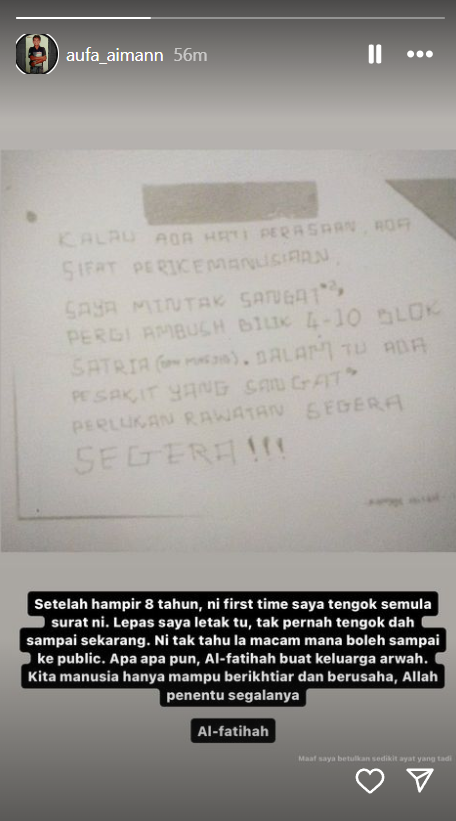 aufa_aimann 56m
KALAU ADA HATI PERASAAN, ADA
SIFAT PERIKEMANUSIAAN.
SAYA MINTAK SANGAT"2,
PERGI AMBUSH BILIK 4-10 BLOK
SATRIA. DALAM TU ADA
PESAKIT YANG SANGAT"
PERLUKAN RAWATAN SEGERA
SEGERA!!!
Setelah hampir 8 tahun, ni first time saya tengok semula
surat ni. Lepas saya letak tu, tak pernah tengok dah
sampai sekarang. Ni tak tahu la macam mana boleh sampai
ke public. Apa apa pun, Al-fatihah buat keluarga arwah.
Kita manusia hanya mampu berikhtiar dan berusaha, Allah
penentu segalanya
Al-fatihah
Maaf saya betulkan sedikit ayat yang tadi